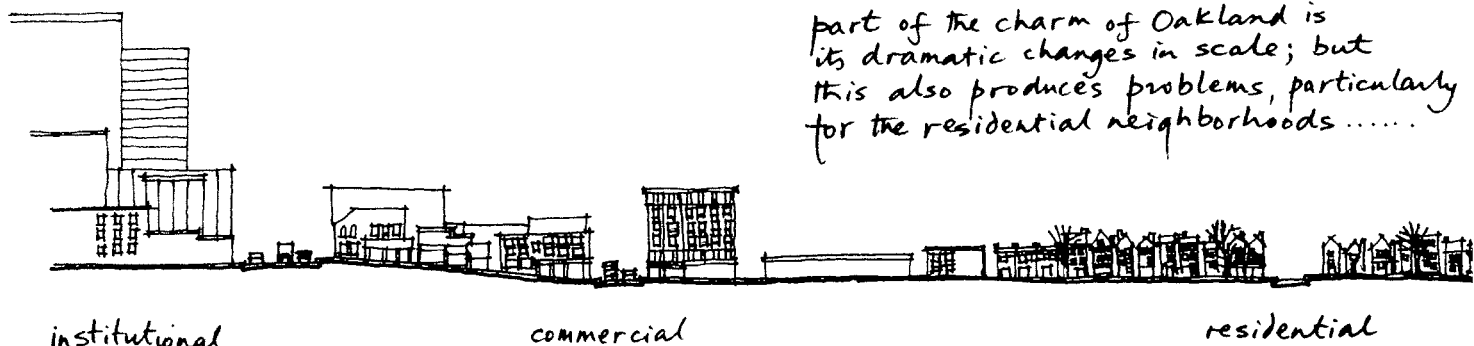 part of the charm of Oakland is
its dramatic changes in scale; but
this also produces problems, particularly
for the residential neighborhoods......
institutional
commercial
residential